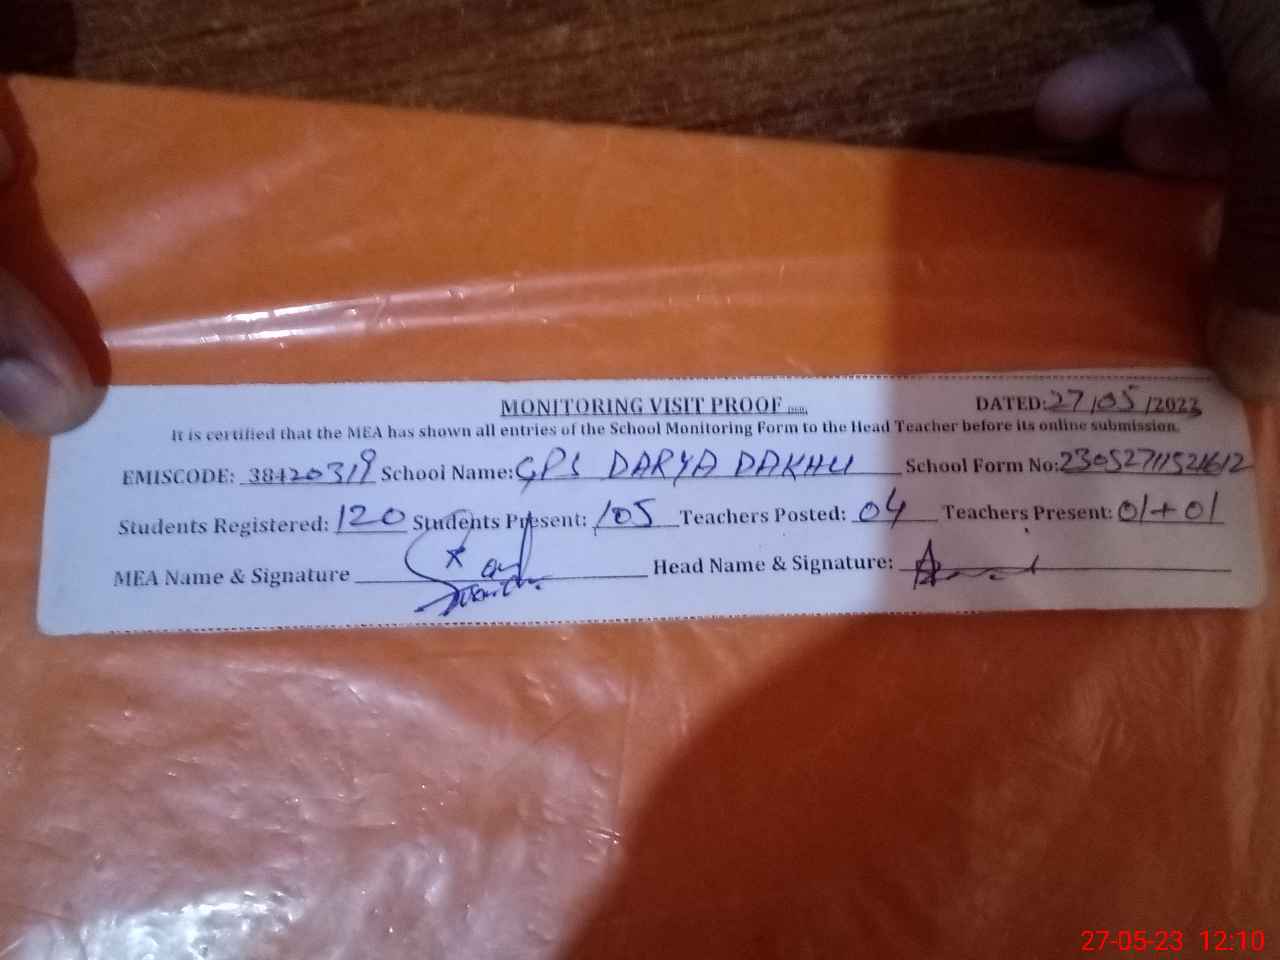 MONITORING VISIT PROOF
DATED: 27/05/2023
It is certified that the MEA has shown all entries of the School Monitoring Form to the Head Teacher before its online submission.
EMISCODE: 38420319 School Name: GPS DARYA DAKHLI School Form No: 23052711521612
Students Registered: 120 Students Present: 105 Teachers Posted: 04 Teachers Present: 01+01
MEA Name & Signature Head Name & Signature:
27-05-23 12:10